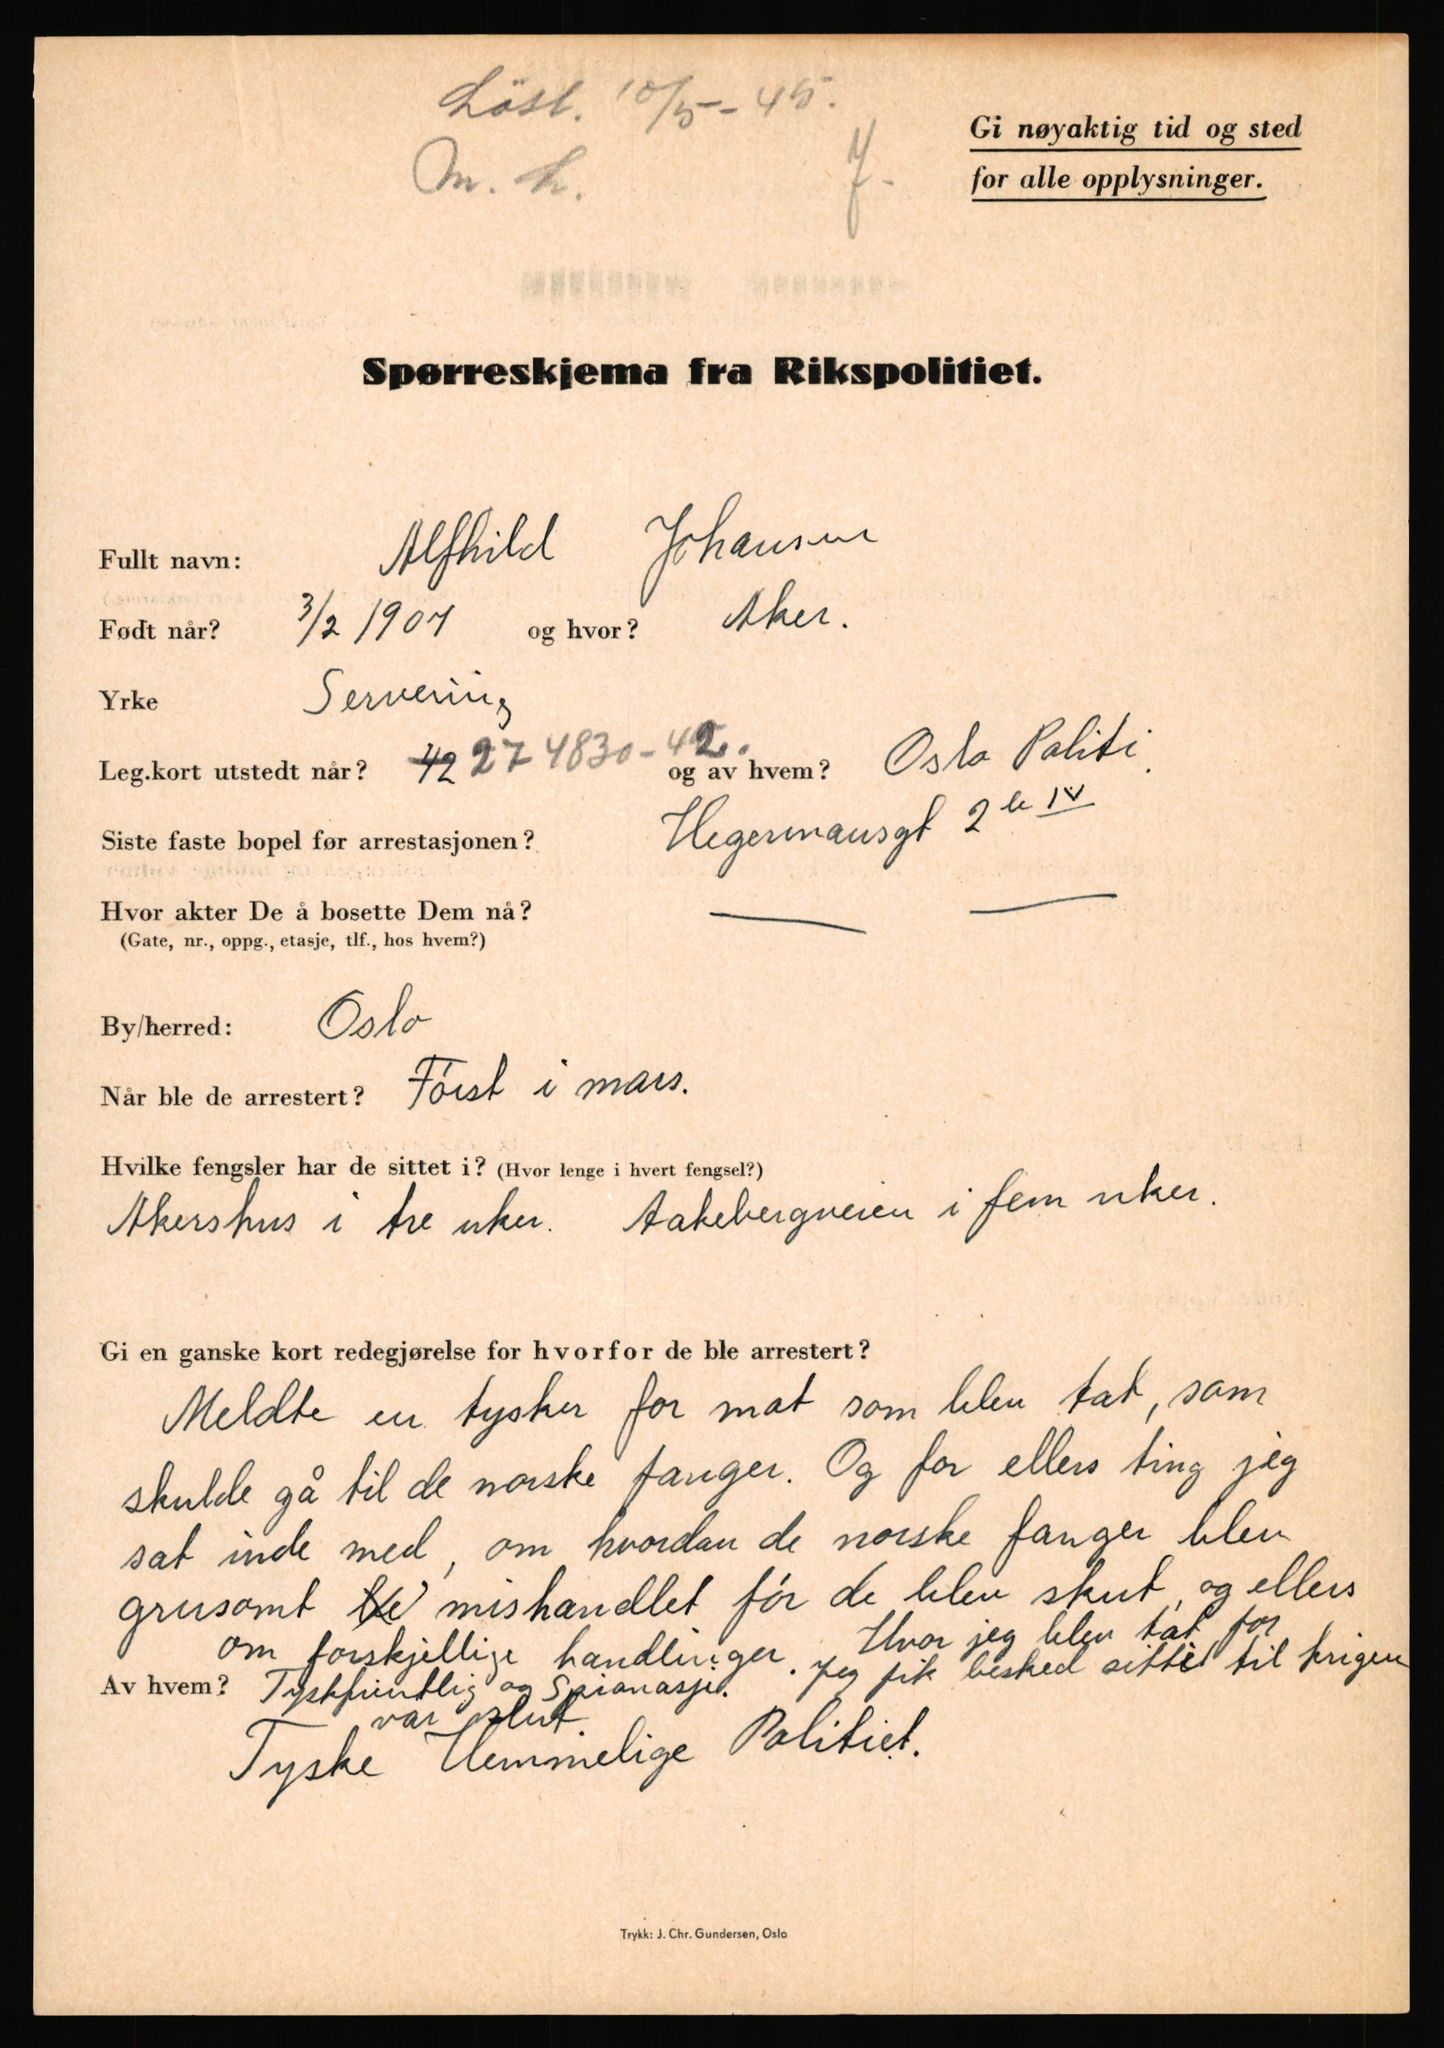 Löst. 10/5-45.
M. L.
J.
Gi nøyaktig tid og sted
for alle opplysninger.
Spørreskjema fra Rikspolitiet.
Fullt navn: Alfhild Johansen
Født når? 3/2 1907 og hvor? Aker.
Yrke Servering
Leg.kort utstedt når? 42 274830-42. og av hvem? Oslo Politi.
Siste faste bopel før arrestasjonen? Hegermansgt 2 b IV
Hvor akter De å bosette Dem nå?
(Gate, nr., oppg., etasje, tlf., hos hvem?)
By/herred: Oslo
Når ble de arrestert? Först i mars.
Hvilke fengsler har de sittet i? (Hvor lenge i hvert fengsel?)
Akershus i tre uker. Aakebergveien i fem uker.
Gi en ganske kort redegjørelse for hvorfor de ble arrestert?
Meldte en tysker for mat som blev tat, som
skulde gå til de norske fanger. Og for ellers ting jeg
sat inde med, om hvordan de norske fanger blev
grusomt mishandlet för de blev skut, og ellers
om forskjellige handlinger. Hvor jeg blev tat for
Tyskfientlig og Spionasje. Jeg fik besked sitte til krigen
var slut.
Av hvem?
Tyske Hemmelige Politiet.
Trykk: J. Chr. Gundersen, Oslo